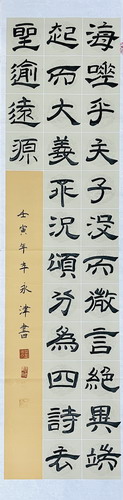 海嗟乎夫子没而微言絕異端
起而大義乖況頌分為四詩去
聖逾遠源
壬寅年辛永津書